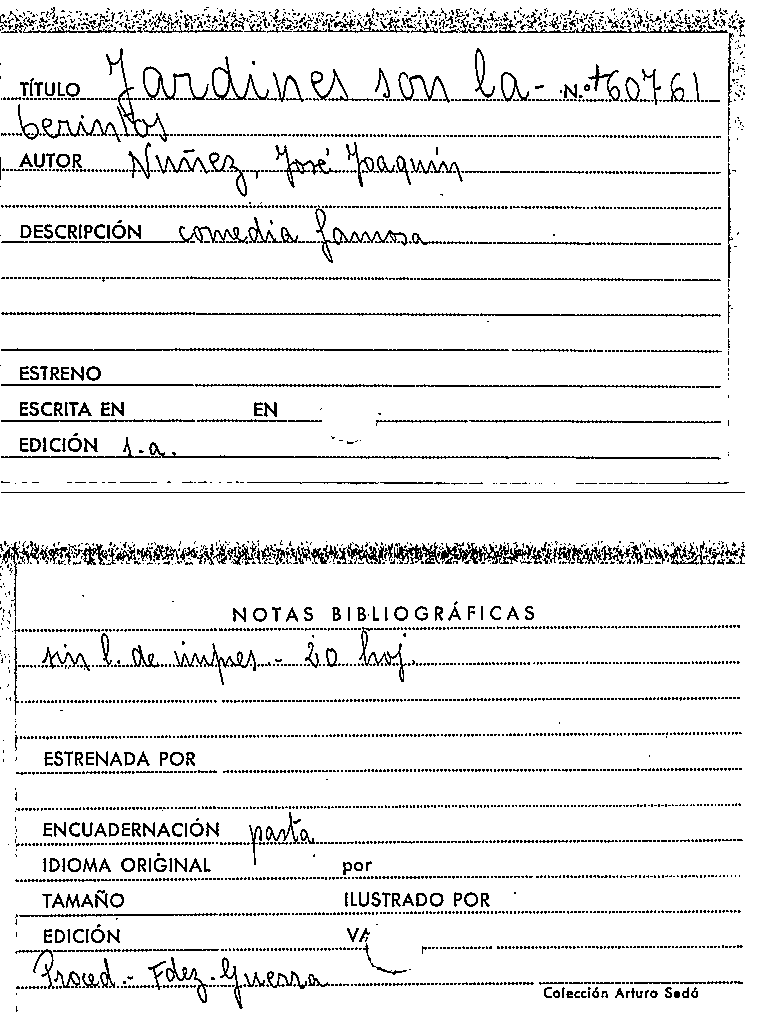 TÍTULO Jardines son la- N.º +60761
berintos
AUTOR Nuñez, José Joaquín
DESCRIPCIÓN comedia famosa
ESTRENO
ESCRITA EN EN
EDICIÓN s.a.
NOTAS BIBLIOGRÁFICAS
sin l. de impres.- 20 hoj.
ESTRENADA POR
ENCUADERNACIÓN pasta
IDIOMA ORIGINAL por
TAMAÑO ILUSTRADO POR
EDICIÓN
Proced.- Fdez-Guerra
Colección Arturo Sedó